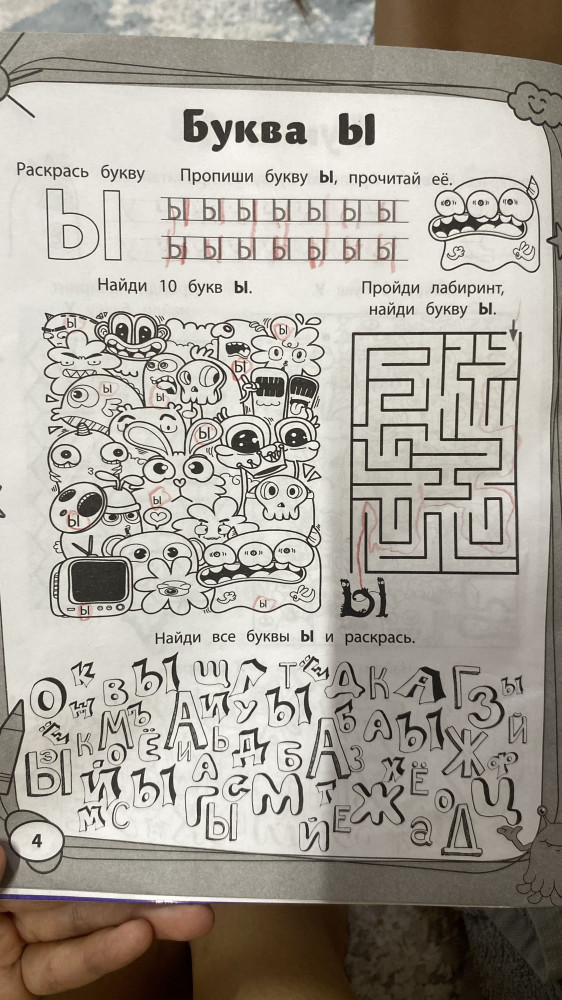 Буква Ы
Раскрась букву
Ы
Пропиши букву Ы, прочитай её.
Ы Ы Ы Ы Ы Ы Ы
Ы Ы Ы Ы Ы Ы Ы
Найди 10 букв Ы.
Ы
Ы
Ы
Ы
Ы
Ы
Ы
Ы
Ы
Ы
Пройди лабиринт,
найди букву Ы.
Ы
Найди все буквы Ы и раскрась.
О К В Ы Щ Л Т Д К Я Г З Ы
М Ъ А И У Ы Б А Ы Й
Ы Э К Ю Ё И Ь Д Б А З Ж Ф
Й Ы А С М Т Ж Х Ё О Ц
М С Г Ы Й Е а Д
4